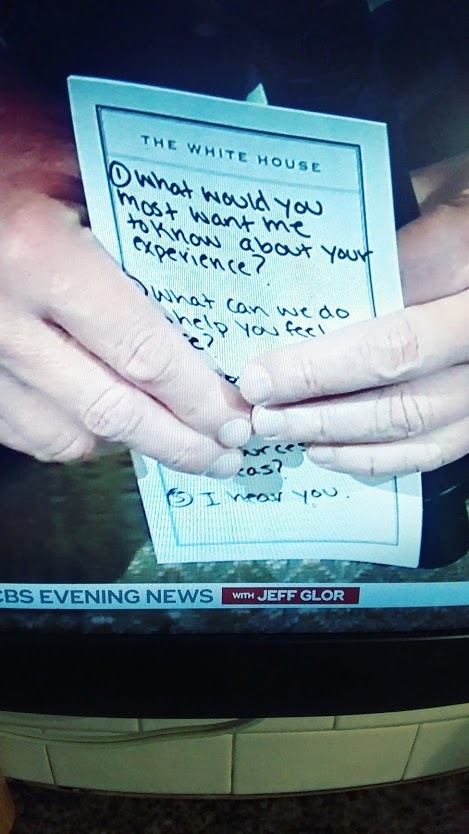 THE WHITE HOUSE
① What would you
most want me
to know about your
experience?
What can we do
help you feel
⑤ I hear you.
CBS EVENING NEWS WITH JEFF GLOR